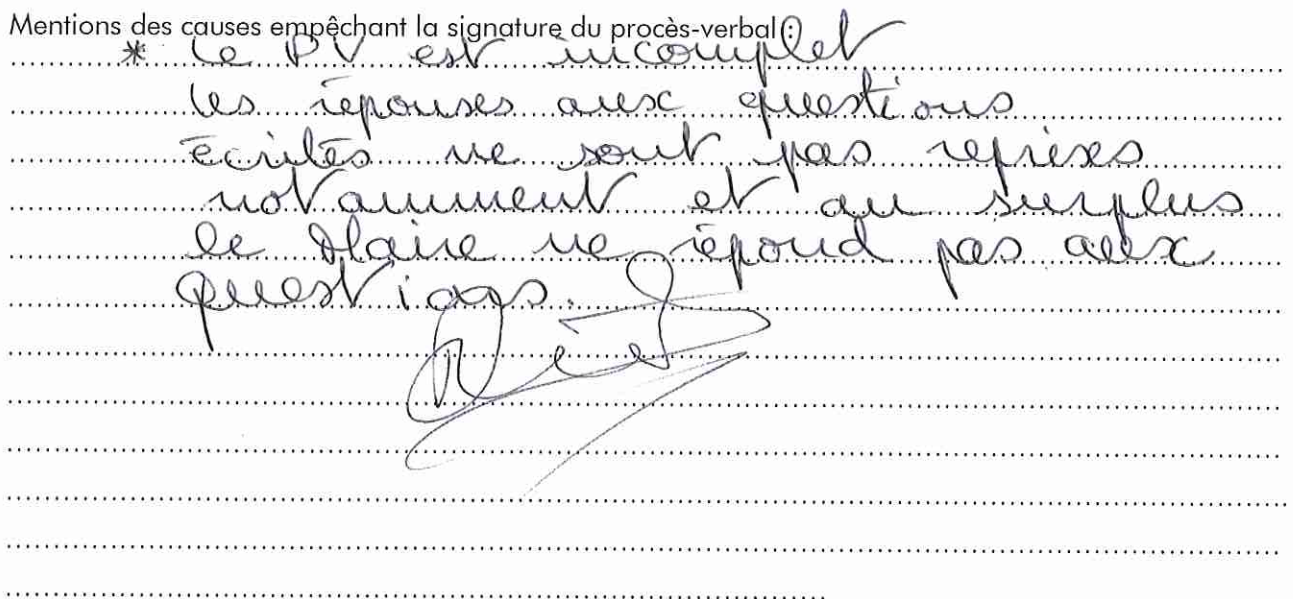 Mentions des causes empêchant la signature du procès-verbal :
* Le PV est incomplet
les réponses aux questions
écrites ne sont pas reprises
notamment et au surplus
le Maire ne répond pas aux
questions.